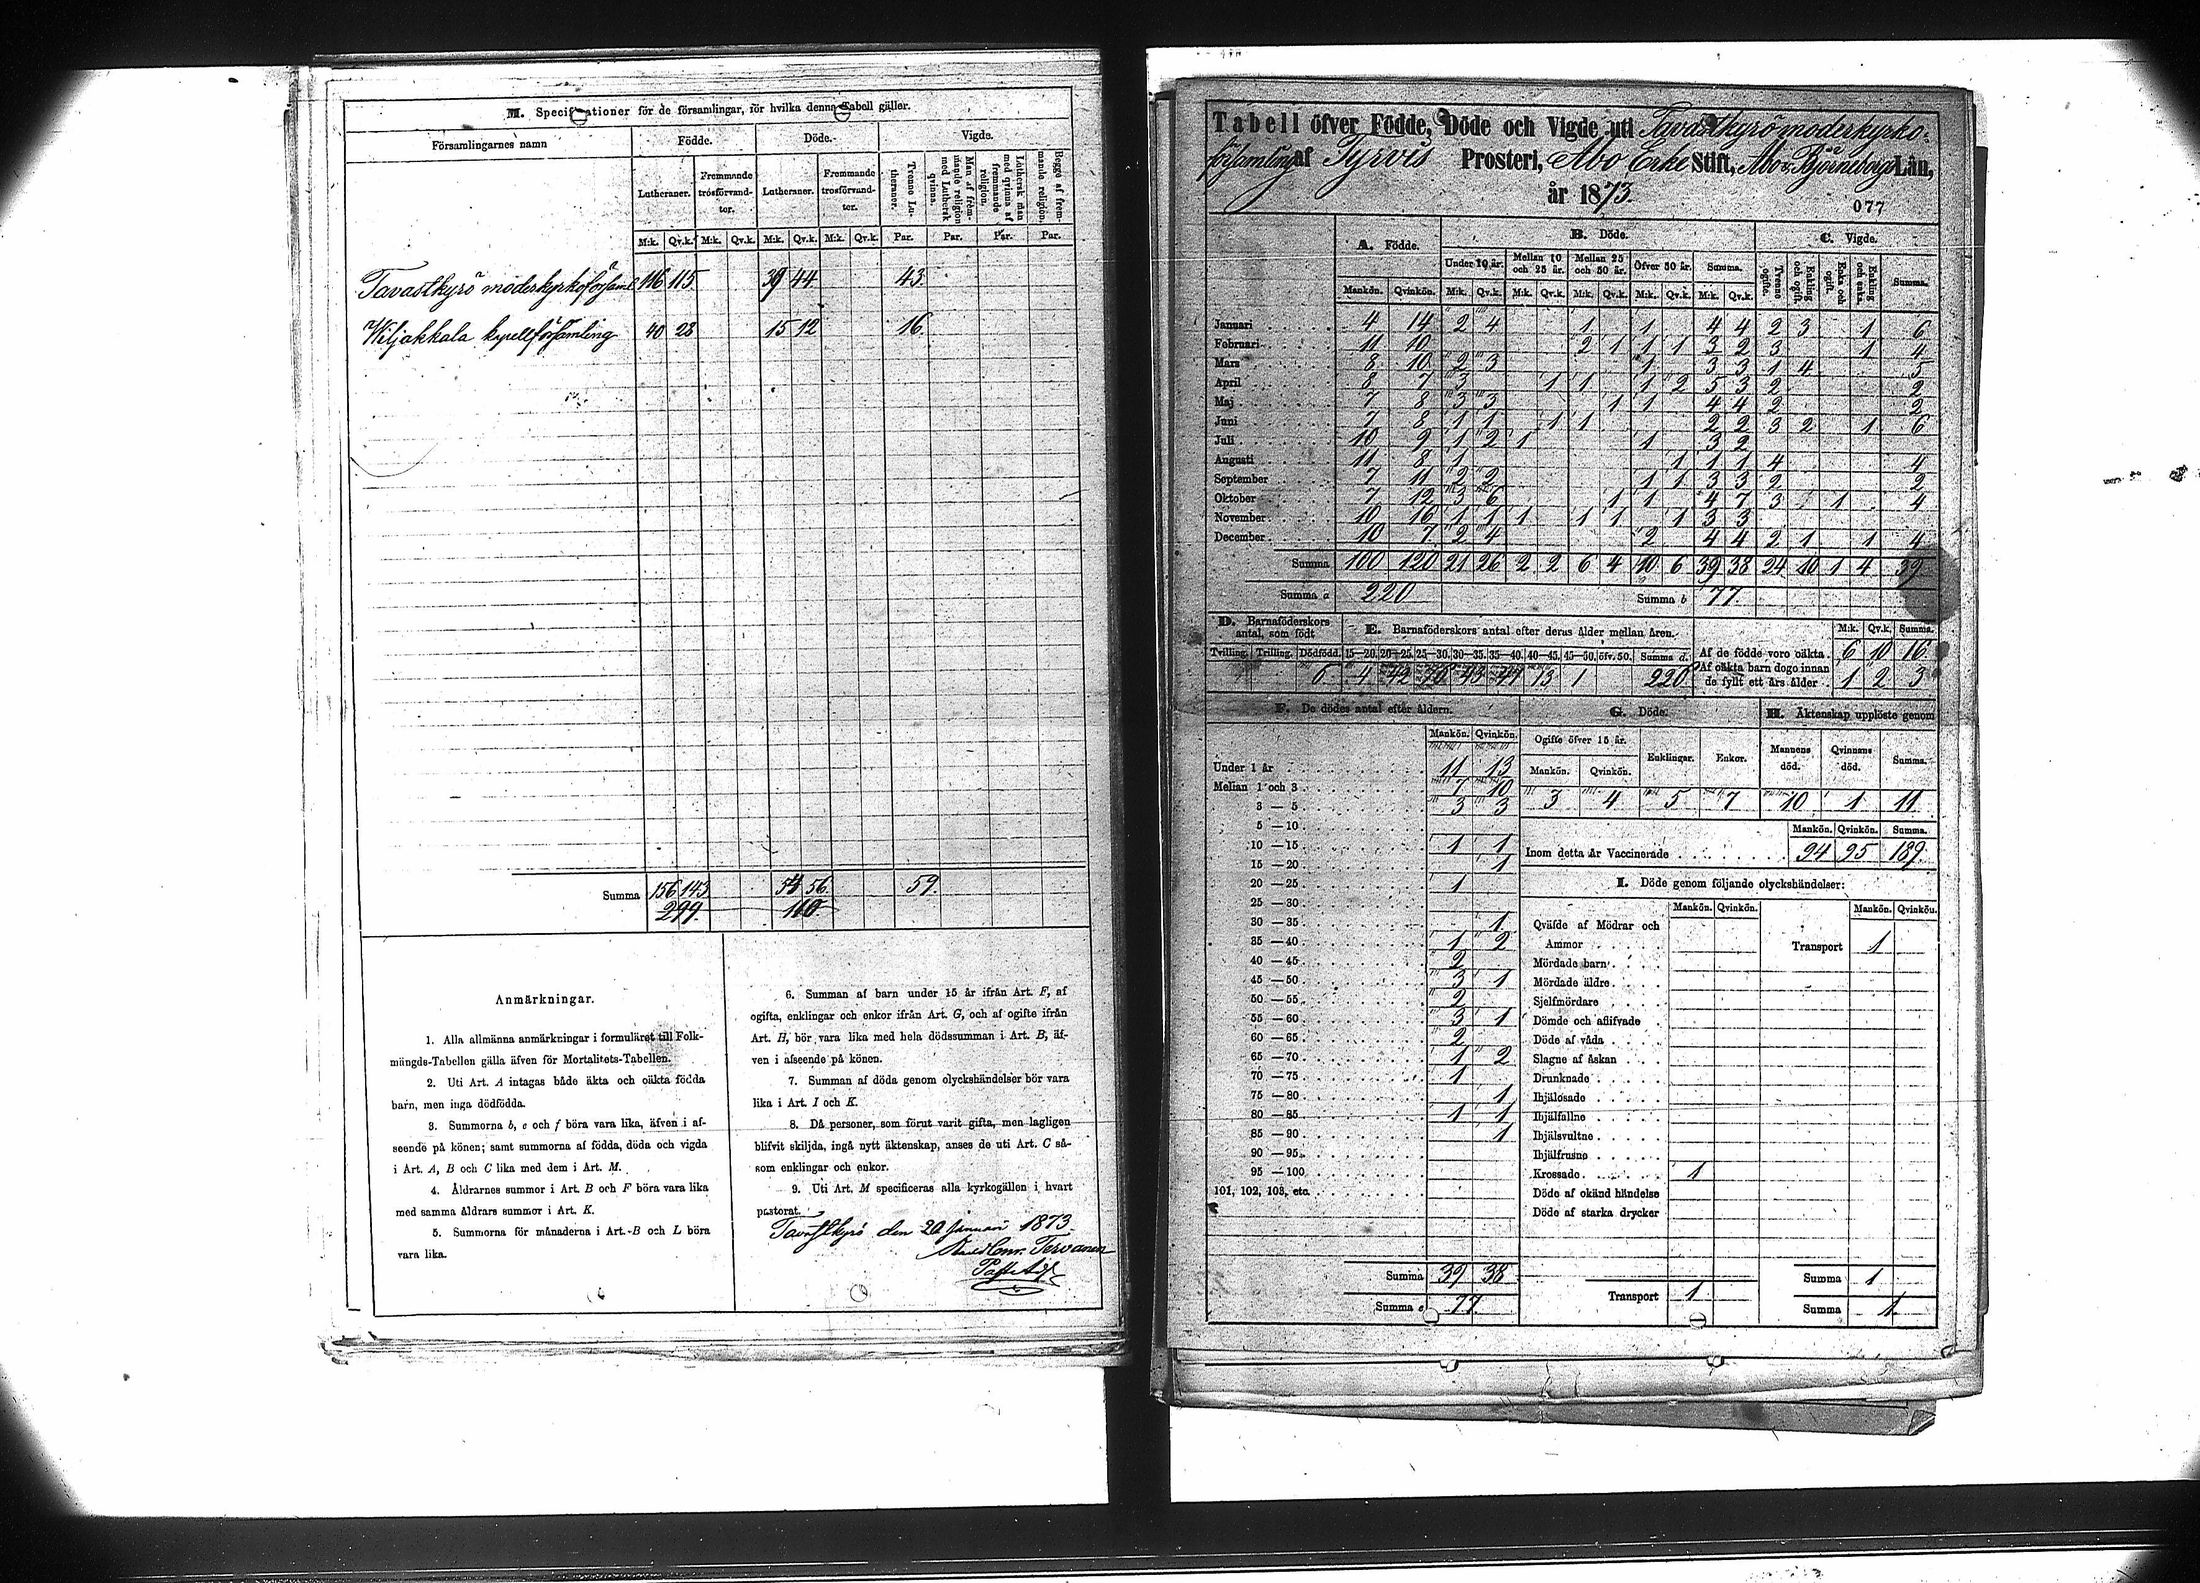 M. Specifikationer för de församlingar, för hvilka denna Tabell gäller.
Församlingarnes namn
Födde. Döde. Vigde.
Lutheraner. Fremmande trosförvandter. Lutheraner. Fremmande trosförvandter. Trenne Lutheraner. Man af fremmande religion med Luthersk qvinna. Luthersk man med qvinna af fremmande religion. Begge af fremmande religion.
M:k. Qv.k. M:k. Qv.k. M:k. Qv.k. M:k. Qv.k. Par. Par. Par. Par.
Tavastkyrö moderkyrkoförsaml 116 115 39 44 43
Wiljakkala kapellförsamling 40 28 15 12 16
Summa 156 143 54 56 59
299 110
Anmärkningar.
1. Alla allmänna anmärkningar i formuläret till Folk-
mängds-Tabellen gälla äfven för Mortalitets-Tabellen.
2. Uti Art. A intagas både äkta och oäkta födda
barn, men inga dödfödda.
3. Summorna b, e och f böra vara lika, äfven i af-
seende på könen; samt summorna af födda, döda och vigda
i Art. A, B och C lika med dem i Art. M.
4. Åldrarnes summor i Art. B och F böra vara lika
med samma åldrars summor i Art. K.
5. Summorna för månaderna i Art. B och L böra
vara lika.
6. Summan af barn under 15 år ifrån Art. F, af
ogifta, enklingar och enkor ifrån Art. G, och af ogifte ifrån
Art. H, bör vara lika med hela dödssumman i Art. B, äf-
ven i afseende på könen.
7. Summan af döda genom olyckshändelser bör vara
lika i Art. I och K.
8. Då personer, som förut varit gifta, men lagligen
blifvit skiljda, ingå nytt äktenskap, anses de uti Art. C så-
som enklingar och enkor.
9. Uti Art. M specificeras alla kyrkogällen i hvart
pastorat.
Tavastkyrö den 20 Januari 1873.
Tervonen
Tabell öfver Födde, Döde och Vigde uti Tavastkyrö moderkyrko-
församling af Tyrvis Prosteri, Åbo Erke Stift, Åbo o. Björneborgs Län,
år 1873.
077
A. Födde. B. Döde. C. Vigde.
Under 10 år. Mellan 10 och 25 år. Mellan 25 och 50 år. Öfver 50 år. Summa. Trenne ogifte. Enkling och ogift. Enka och ogift. Enkling och enka. Summa.
Mankön. Qvinkön. M:k. Qv.k. M:k. Qv.k. M:k. Qv.k. M:k. Qv.k. M:k. Qv.k.
Januari 4 14 2 4 1 1 4 4 2 3 1 6
Februari 11 10 2 1 1 1 3 2 3 1 4
Mars 8 10 2 3 1 3 3 1 4 5
April 8 7 3 1 1 1 2 5 3 2 2
Maj 7 8 3 3 1 1 4 4 2 2
Juni 7 8 1 1 1 1 2 2 3 2 1 6
Juli 10 9 1 2 1 1 3 2
Augusti 11 8 1 1 1 1 4 4
September 7 11 2 2 1 1 3 3 2 2
Oktober 7 12 3 6 1 1 4 7 3 1 4
November 10 16 1 1 1 1 1 1 3 3
December 10 7 2 4 2 4 4 2 1 1 4
Summa 100 120 21 26 2 2 6 4 10 6 39 38 24 10 1 4 39
Summa a 220 Summa b 77
D. Barnaföderskors antal, som födt
E. Barnaföderskors antal efter deras ålder mellan åren.
M:k. Qv.k. Summa.
Tvilling. Trilling. Dödfödd. 15-20. 20-25. 25-30. 30-35. 35-40. 40-45. 45-50. öfv. 50. Summa d.
6 4 42 70 43 47 13 1 220
Af de födde voro oäkta 6 10 16
Af oäkta barn dogo innan
de fyllt ett års ålder 1 2 3
F. De dödes antal efter åldern.
Mankön. Qvinkön.
Under 1 år 11 13
Mellan 1 och 3 7 10
3 — 5 3 3
5 — 10
10 — 15 1 1
15 — 20 1
20 — 25 1
25 — 30
30 — 35 1
35 — 40 1 2
40 — 45 2
45 — 50 3 1
50 — 55 2
55 — 60 3 1
60 — 65 2
65 — 70 1 2
70 — 75 1
75 — 80 1
80 — 85 1 1
85 — 90 1
90 — 95
95 — 100
101, 102, 103, etc.
Summa 39 38
Summa e 77
G. Döde.
Ogifte öfver 15 år. Enklingar. Enkor.
Mankön. Qvinkön.
3 4 5 7
H. Äktenskap upplöste genom
Mannens död. Qvinnans död. Summa.
10 1 11
Mankön. Qvinkön. Summa.
Inom detta år Vaccinerade 94 95 189
I. Döde genom följande olyckshändelser:
Mankön. Qvinkön. Mankön. Qvinkön.
Qväfde af Mödrar och
Ammor
Transport 1
Mördade barn
Mördade äldre
Sjelfmördare
Dömde och aflifvade
Döde af våda
Slagne af åskan
Drunknade
Ihjälosade
Ihjälfallne
Ihjälsvultne
Ihjälfrusne
Krossade 1
Döde af okänd händelse
Döde af starka drycker
Transport 1
Summa 1
Summa 1